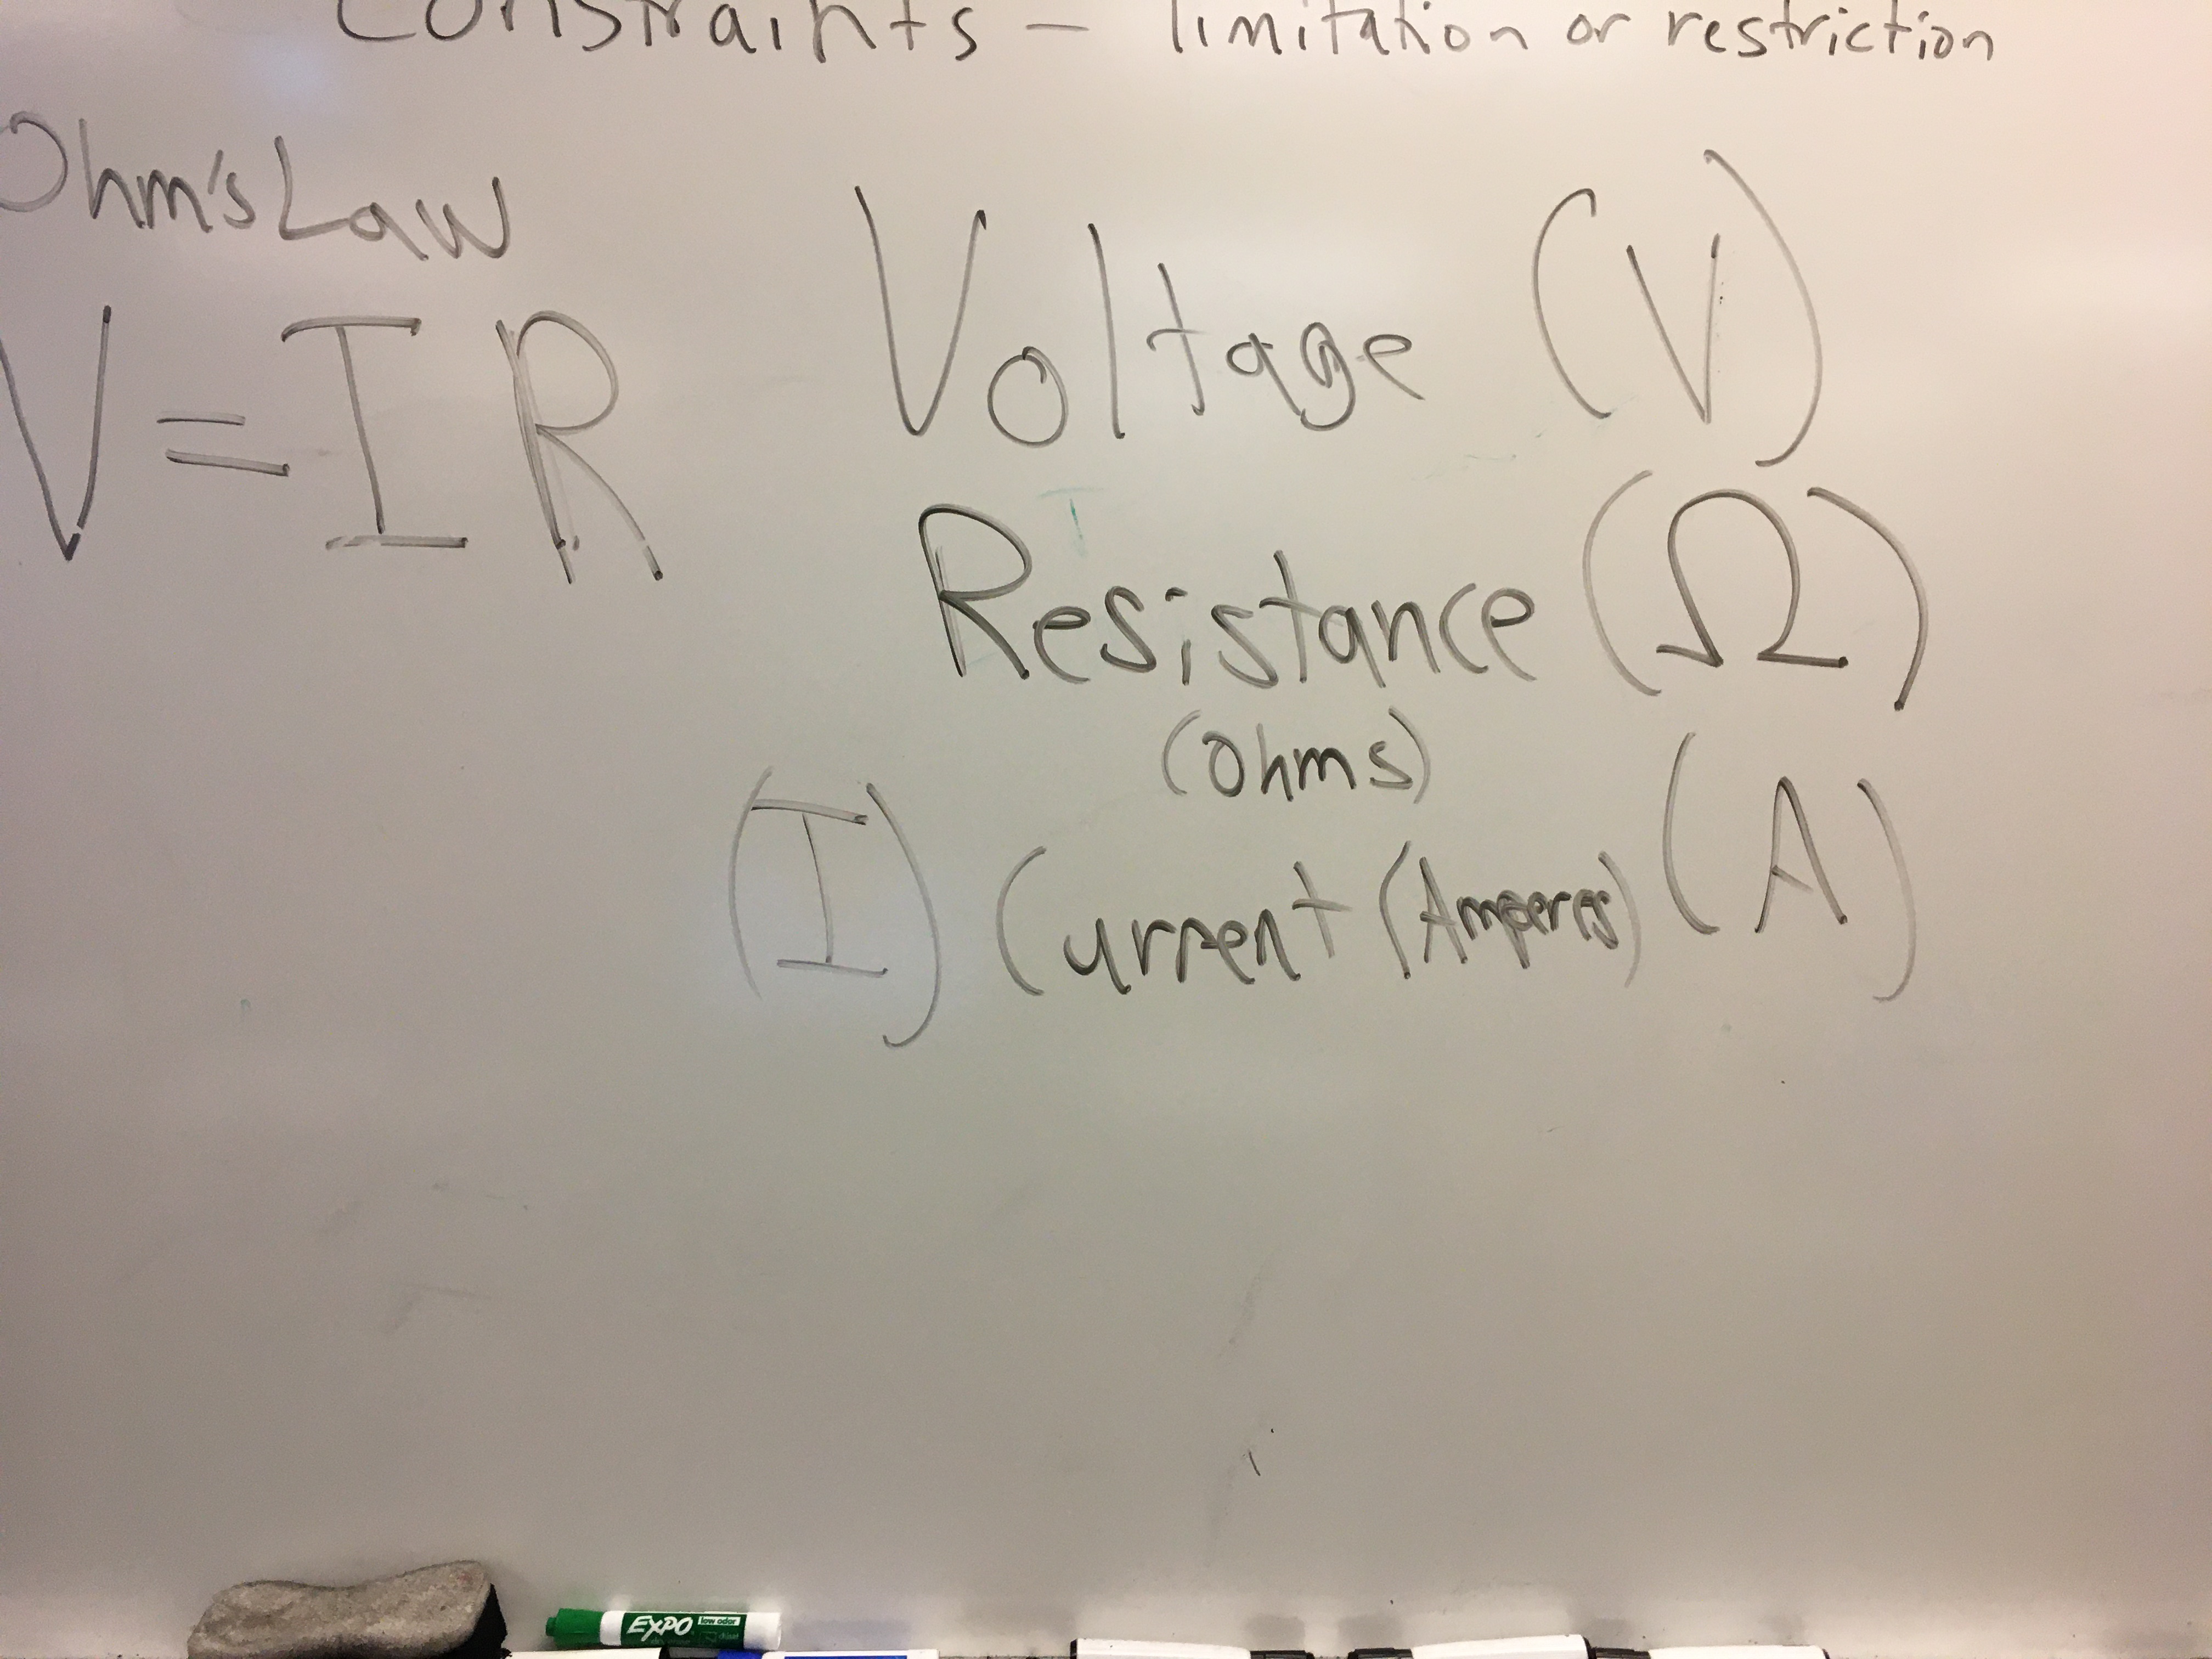 Constraints - limitation or restriction
Ohm's Law
V = I R
Voltage (V)
Resistance (Ω)
(Ohms)
(I) Current (Amperes) (A)
EXPO low odor